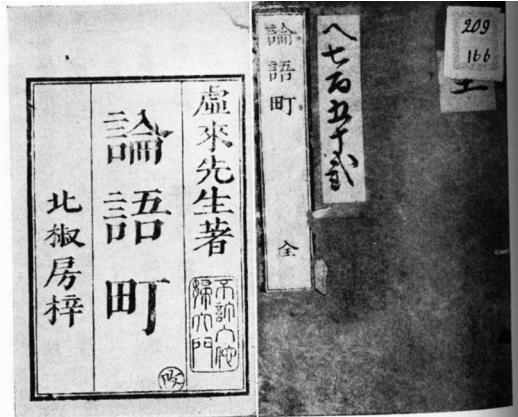 209
166
へ七百五十貳
論語町
全
虛來先生著
論語町
北椒房梓